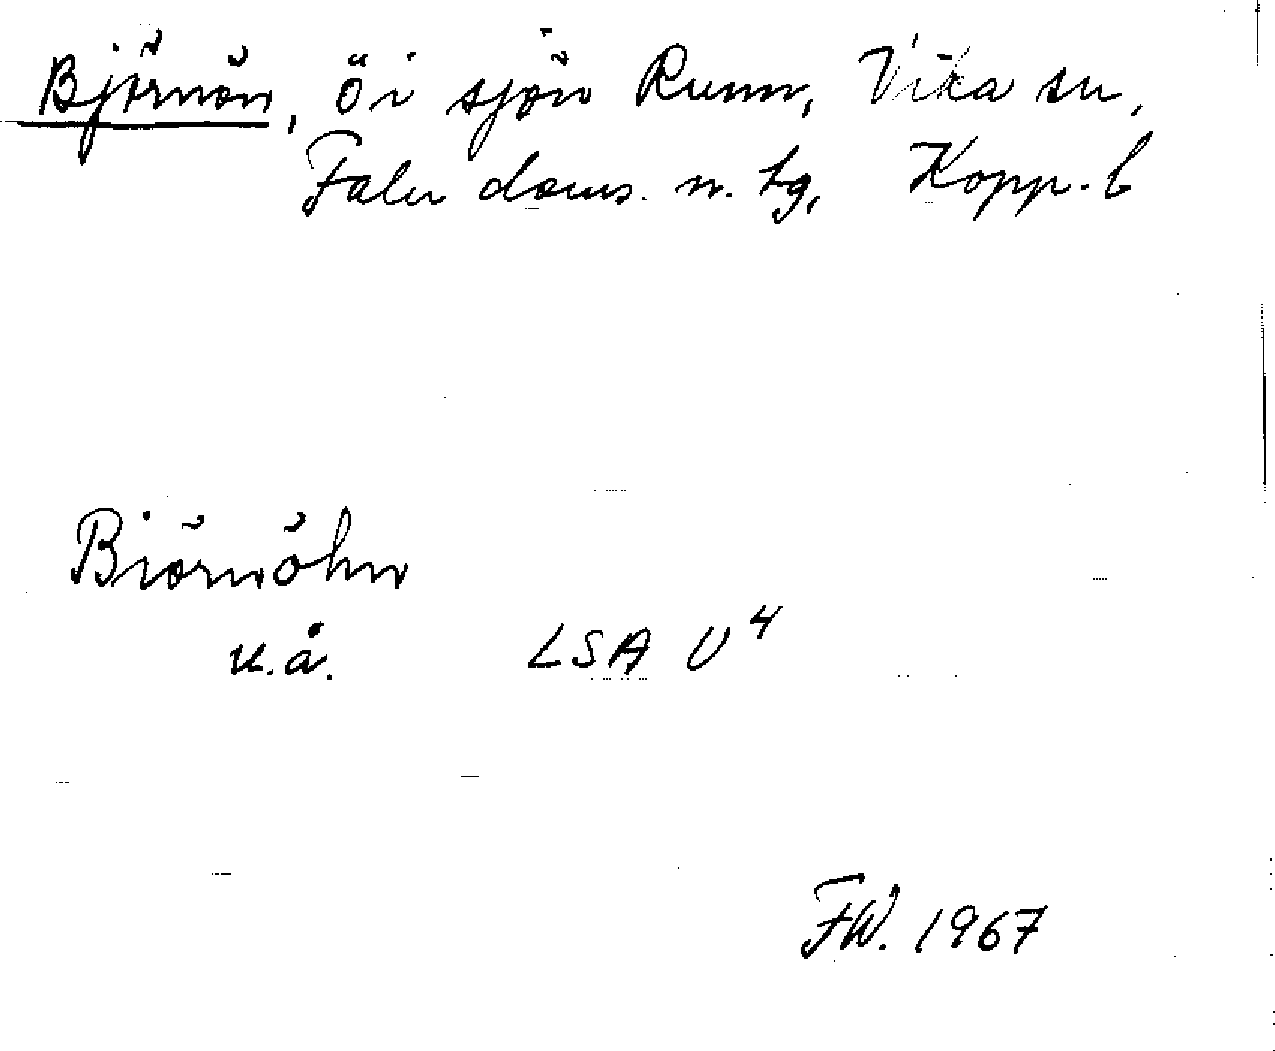 Björnön, ö i sjön Runn, Vika sn,
Falu doms. n. tg, Kopp. l
Biörnöhn
u.å. LSA U4
FW. 1967